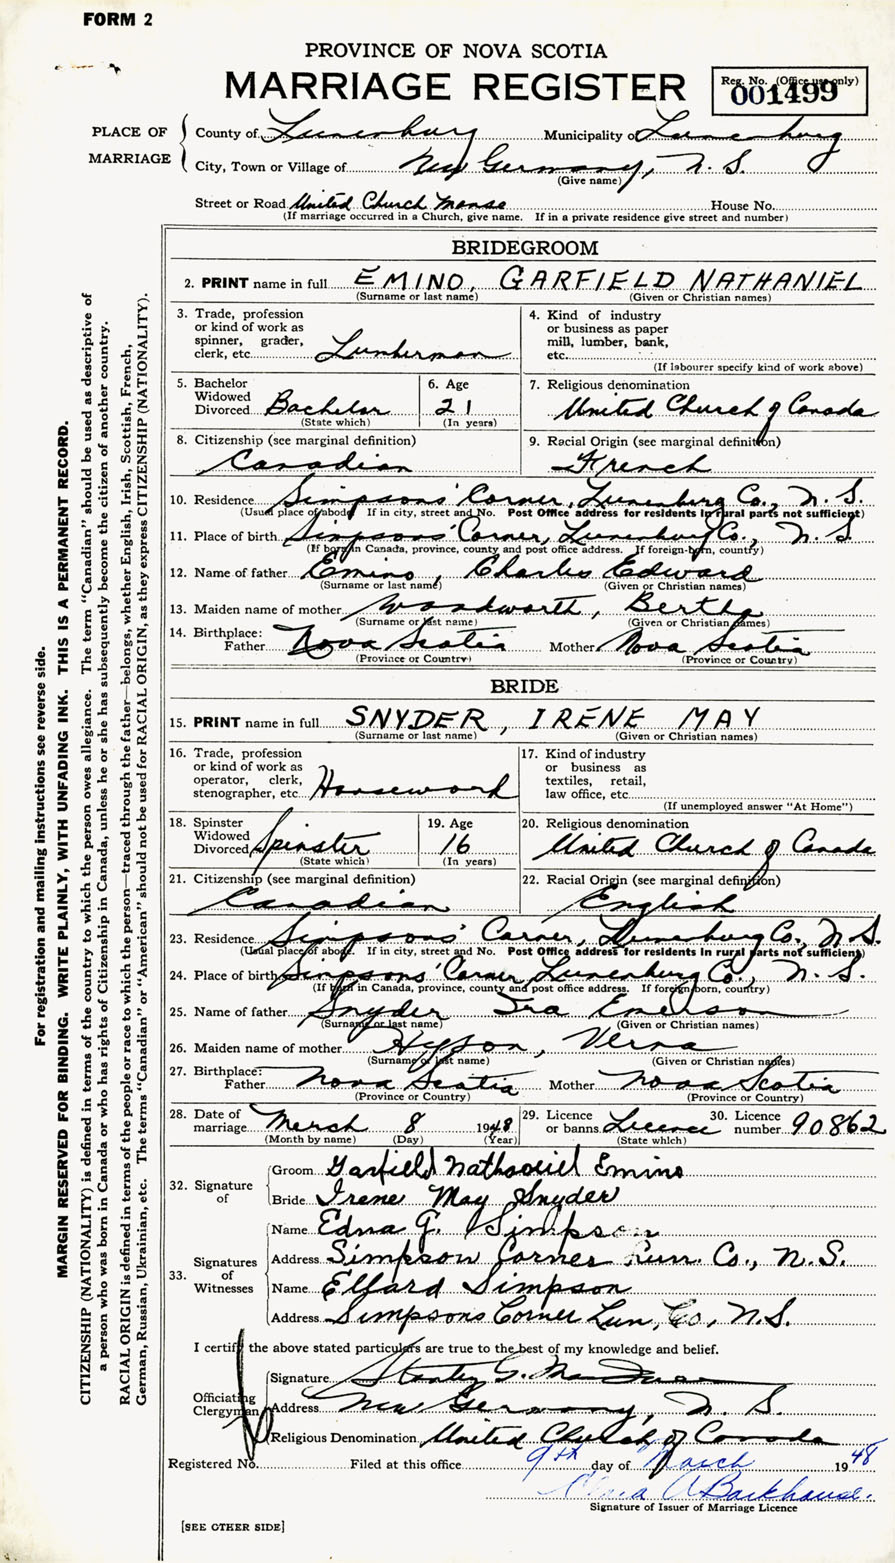 FORM 2
PROVINCE OF NOVA SCOTIA
MARRIAGE REGISTER
Reg. No. (Office use only)
001499
PLACE OF MARRIAGE
County of Lunenburg Municipality of Lunenburg
City, Town or Village of New Germany, N. S.
(Give name)
Street or Road United Church Manse House No.
(If marriage occurred in a Church, give name. If in a private residence give street and number)
BRIDEGROOM
2. PRINT name in full EMINO, GARFIELD NATHANIEL
(Surname or last name) (Given or Christian names)
3. Trade, profession
or kind of work as
spinner, grader,
clerk, etc. Lumberman
4. Kind of industry
or business as paper
mill, lumber, bank,
etc.
(If labourer specify kind of work above)
5. Bachelor
Widowed
Divorced Bachelor
(State which)
6. Age
21
(In years)
7. Religious denomination
United Church of Canada
8. Citizenship (see marginal definition)
Canadian
9. Racial Origin (see marginal definition)
French
10. Residence Simpsons' Corner, Lunenburg Co., N. S.
(Usual place of abode) If in city, street and No. Post Office address for residents in rural parts not sufficient)
11. Place of birth Simpsons' Corner, Lunenburg Co., N. S.
(If born in Canada, province, county and post office address. If foreign-born, country)
12. Name of father Emino, Charles Edward
(Surname or last name) (Given or Christian names)
13. Maiden name of mother Woodworth, Bertha
(Surname or last name) (Given or Christian names)
14. Birthplace:
Father Nova Scotia Mother Nova Scotia
(Province or Country) (Province or Country)
BRIDE
15. PRINT name in full SNYDER, IRENE MAY
(Surname or last name) (Given or Christian names)
16. Trade, profession
or kind of work as
operator, clerk,
stenographer, etc. Housework
17. Kind of industry
or business as
textiles, retail,
law office, etc.
(If unemployed answer "At Home")
18. Spinster
Widowed
Divorced Spinster
(State which)
19. Age
16
(In years)
20. Religious denomination
United Church of Canada
21. Citizenship (see marginal definition)
Canadian
22. Racial Origin (see marginal definition)
English
23. Residence Simpsons' Corner, Lunenburg Co., N. S.
(Usual place of abode. If in city, street and No. Post Office address for residents in rural parts not sufficient)
24. Place of birth Simpsons' Corner Lunenburg Co., N. S.
(If born in Canada, province, county and post office address. If foreign born, country)
25. Name of father Snyder Ira Emerson
(Surname or last name) (Given or Christian names)
26. Maiden name of mother Hyson, Verna
(Surname or last name) (Given or Christian names)
27. Birthplace:
Father Nova Scotia Mother Nova Scotia
(Province or Country) (Province or Country)
28. Date of
marriage March 8 1948
(Month by name) (Day) (Year)
29. Licence
or banns Licence
(State which)
30. Licence
number 90862
32. Signature of
Groom Garfield Nathaniel Emino
Bride Irene May Snyder
33. Signatures of Witnesses
Name Edna G. Simpson
Address Simpson Corner Lun. Co., N.S.
Name Ellard Simpson
Address Simpsons Corner Lun, Co, N.S.
I certify the above stated particulars are true to the best of my knowledge and belief.
Officiating Clergyman
Signature Stanley G.
Address New Germany, N. S.
Religious Denomination United Church of Canada
Registered No. Filed at this office 9th day of March 1948
A Barkhouse.
Signature of Issuer of Marriage Licence
[SEE OTHER SIDE]
For registration and mailing instructions see reverse side.
MARGIN RESERVED FOR BINDING. WRITE PLAINLY, WITH UNFADING INK. THIS IS A PERMANENT RECORD.
CITIZENSHIP (NATIONALITY) is defined in terms of the country to which the person owes allegiance. The term "Canadian" should be used as descriptive of
a person who was born in Canada or who has rights of Citizenship in Canada, unless he or she has subsequently become the citizen of another country.
RACIAL ORIGIN is defined in terms of the people or race to which the person—traced through the father—belongs, whether English, Irish, Scottish, French,
German, Russian, Ukrainian, etc. The terms "Canadian" or "American" should not be used for RACIAL ORIGIN, as they express CITIZENSHIP (NATIONALITY).